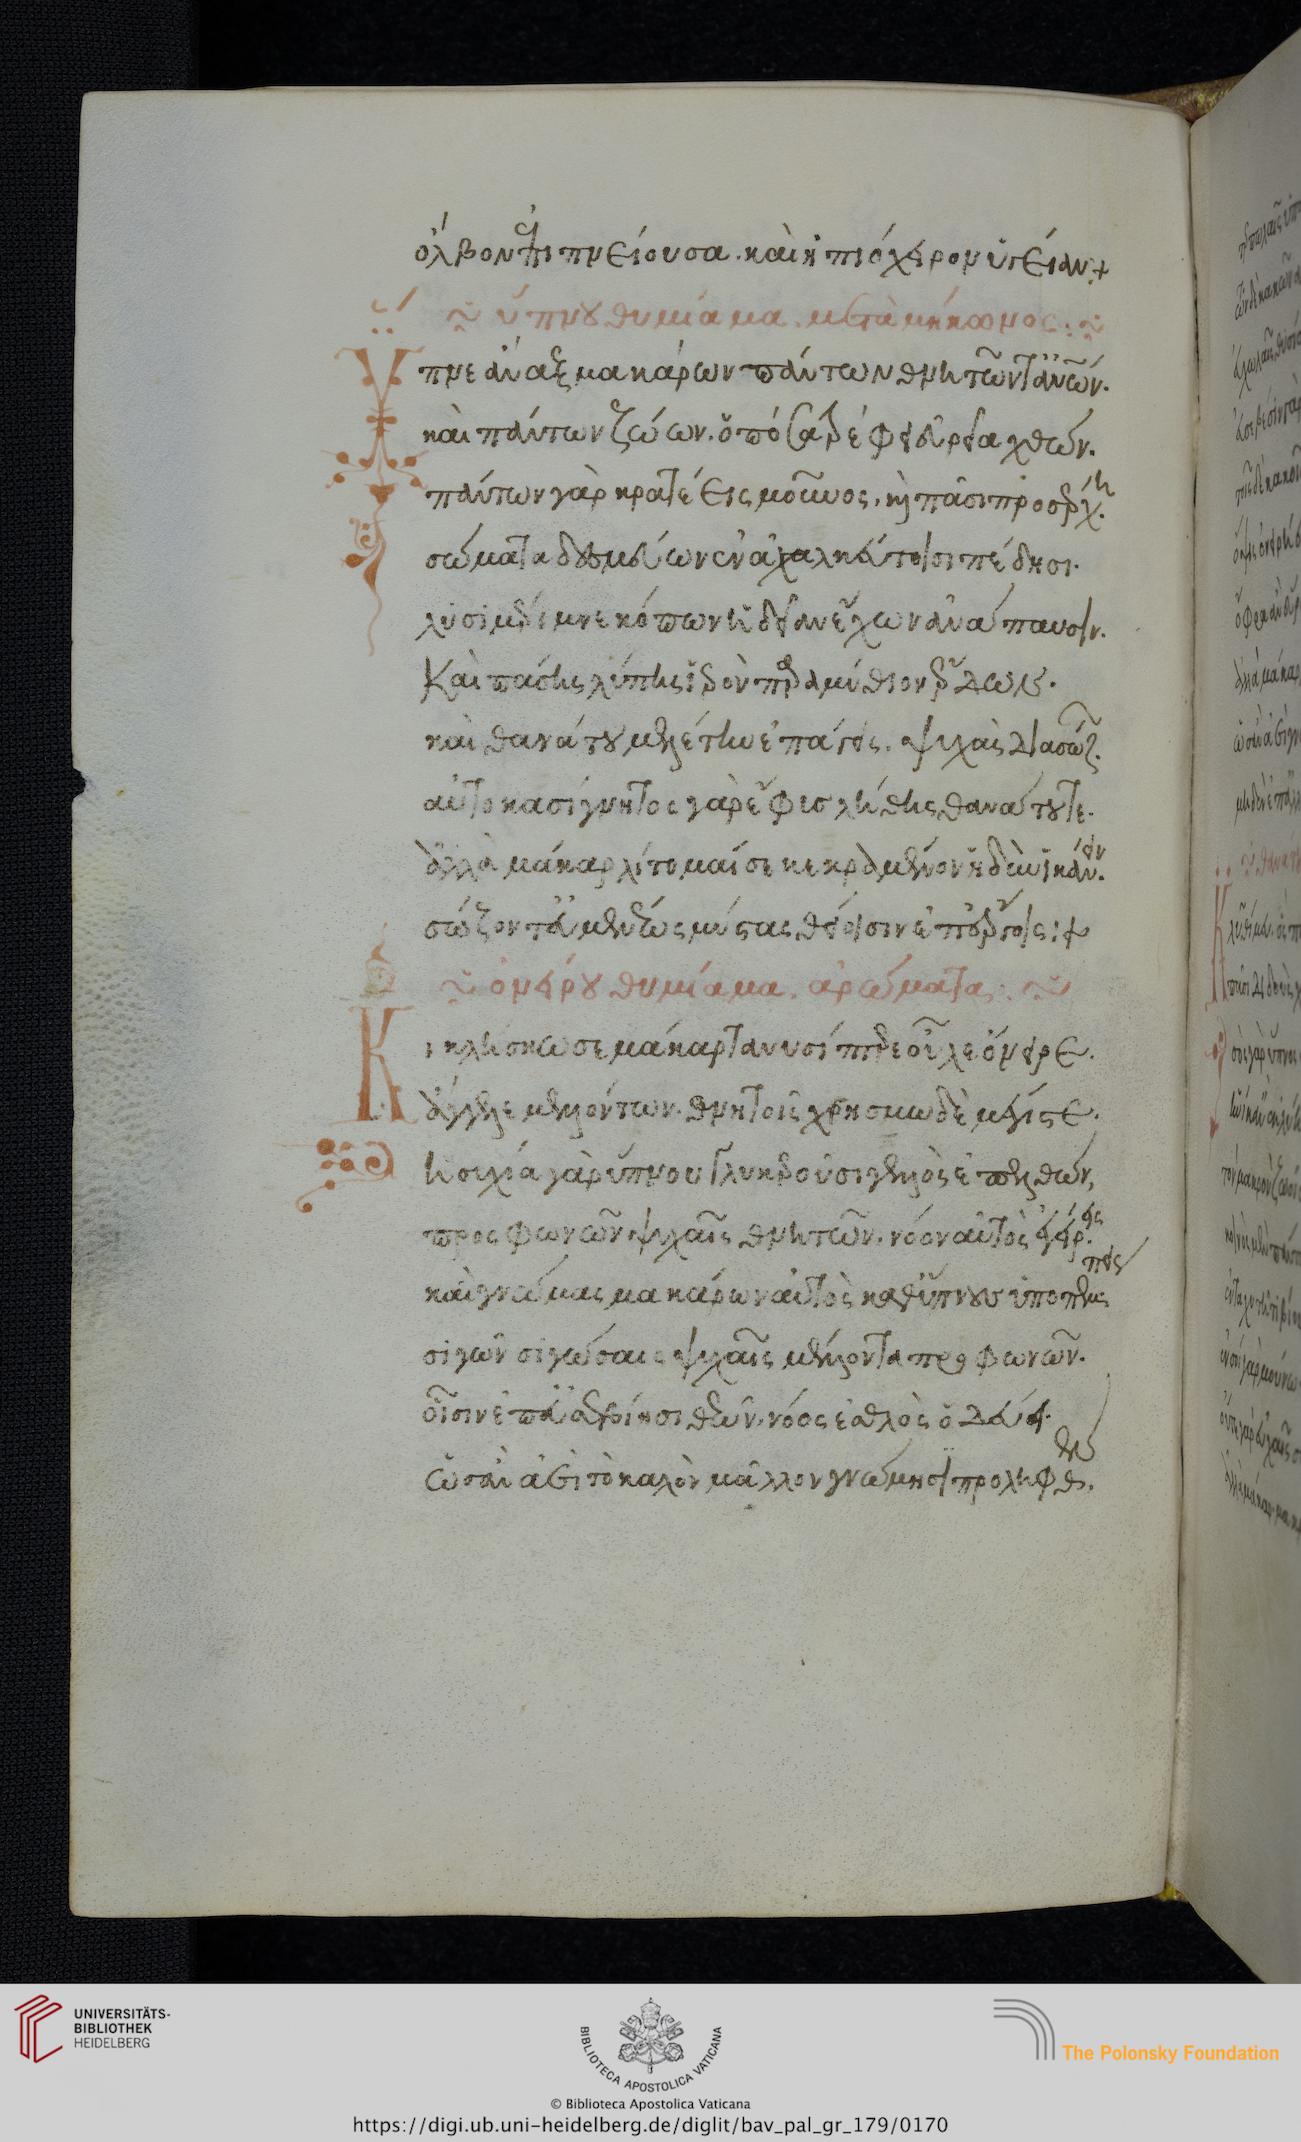 ὄλβον ἐπιπνείουσα καὶ ἠπιόχειρον ὑγείαν:+
ὕπνου θυμίαμα. μετὰ μήκωνος:
Ὕπνε ἄναξ μακάρων πάντων θνητῶν τ' ἀνθρώπων.
καὶ πάντων ζώων. ὁπόσα τρέφει εὐρεῖα χθών.
πάντων γὰρ κρατέεις μοῦνος. καὶ πᾶσι προσέρχη.
σώματα δεσμεύων ἐν ἀχαλκεύτοισι πέδησι.
λυσιμέριμνε κόπων ἡδεῖαν ἔχων ἀνάπαυσιν.
Καὶ πάσης λύπης ἱερὸν παραμύθιον ἔρδων.
καὶ θανάτου μελέτην ἐπάγεις. ψυχὰς διασώζων.
αὐτοκασίγνητος γὰρ ἔφυς λήθης θανάτου τε.
ἀλλὰ μάκαρ λίτομαί σε κεκραμένον ἡδὺν ἱκάνειν.
σώζοντ' εὐμενέως μύστας θείοισιν ἐπ' ἔργοις:+
ὀνείρου θυμίαμα. ἀρώματα:
Κικλήσκω σε μάκαρ τανυσίπτερε οὖλε ὄνειρε.
ἄγγελε μελλόντων. θνητοῖς χρησμωδὲ μέγιστε.
ἡσυχία γὰρ ὕπνου γλυκεροῦ σιγηλὸς ἐπελθών,
προσφωνῶν ψυχαῖς θνητῶν. νόον αὐτὸς ἐγείρεις.
καὶ γνώμας μακάρων αὐτὸς καθ' ὕπνους ὑποπέμπεις
σιγῶν σιγώσαις ψυχαῖς μέλλοντα προφωνῶν.
οἷσιν ἐπ' εὐσεβίησι θεῶν νόος ἐσθλὸς ὁδεύει.
ὡς ἂν ἀεὶ τὸ καλὸν μᾶλλον γνώμησι προληφθέν.
UNIVERSITÄTS-
BIBLIOTHEK
HEIDELBERG
BIBLIOTECA APOSTOLICA VATICANA
The Polonsky Foundation
© Biblioteca Apostolica Vaticana
https://digi.ub.uni-heidelberg.de/diglit/bav_pal_gr_179/0170